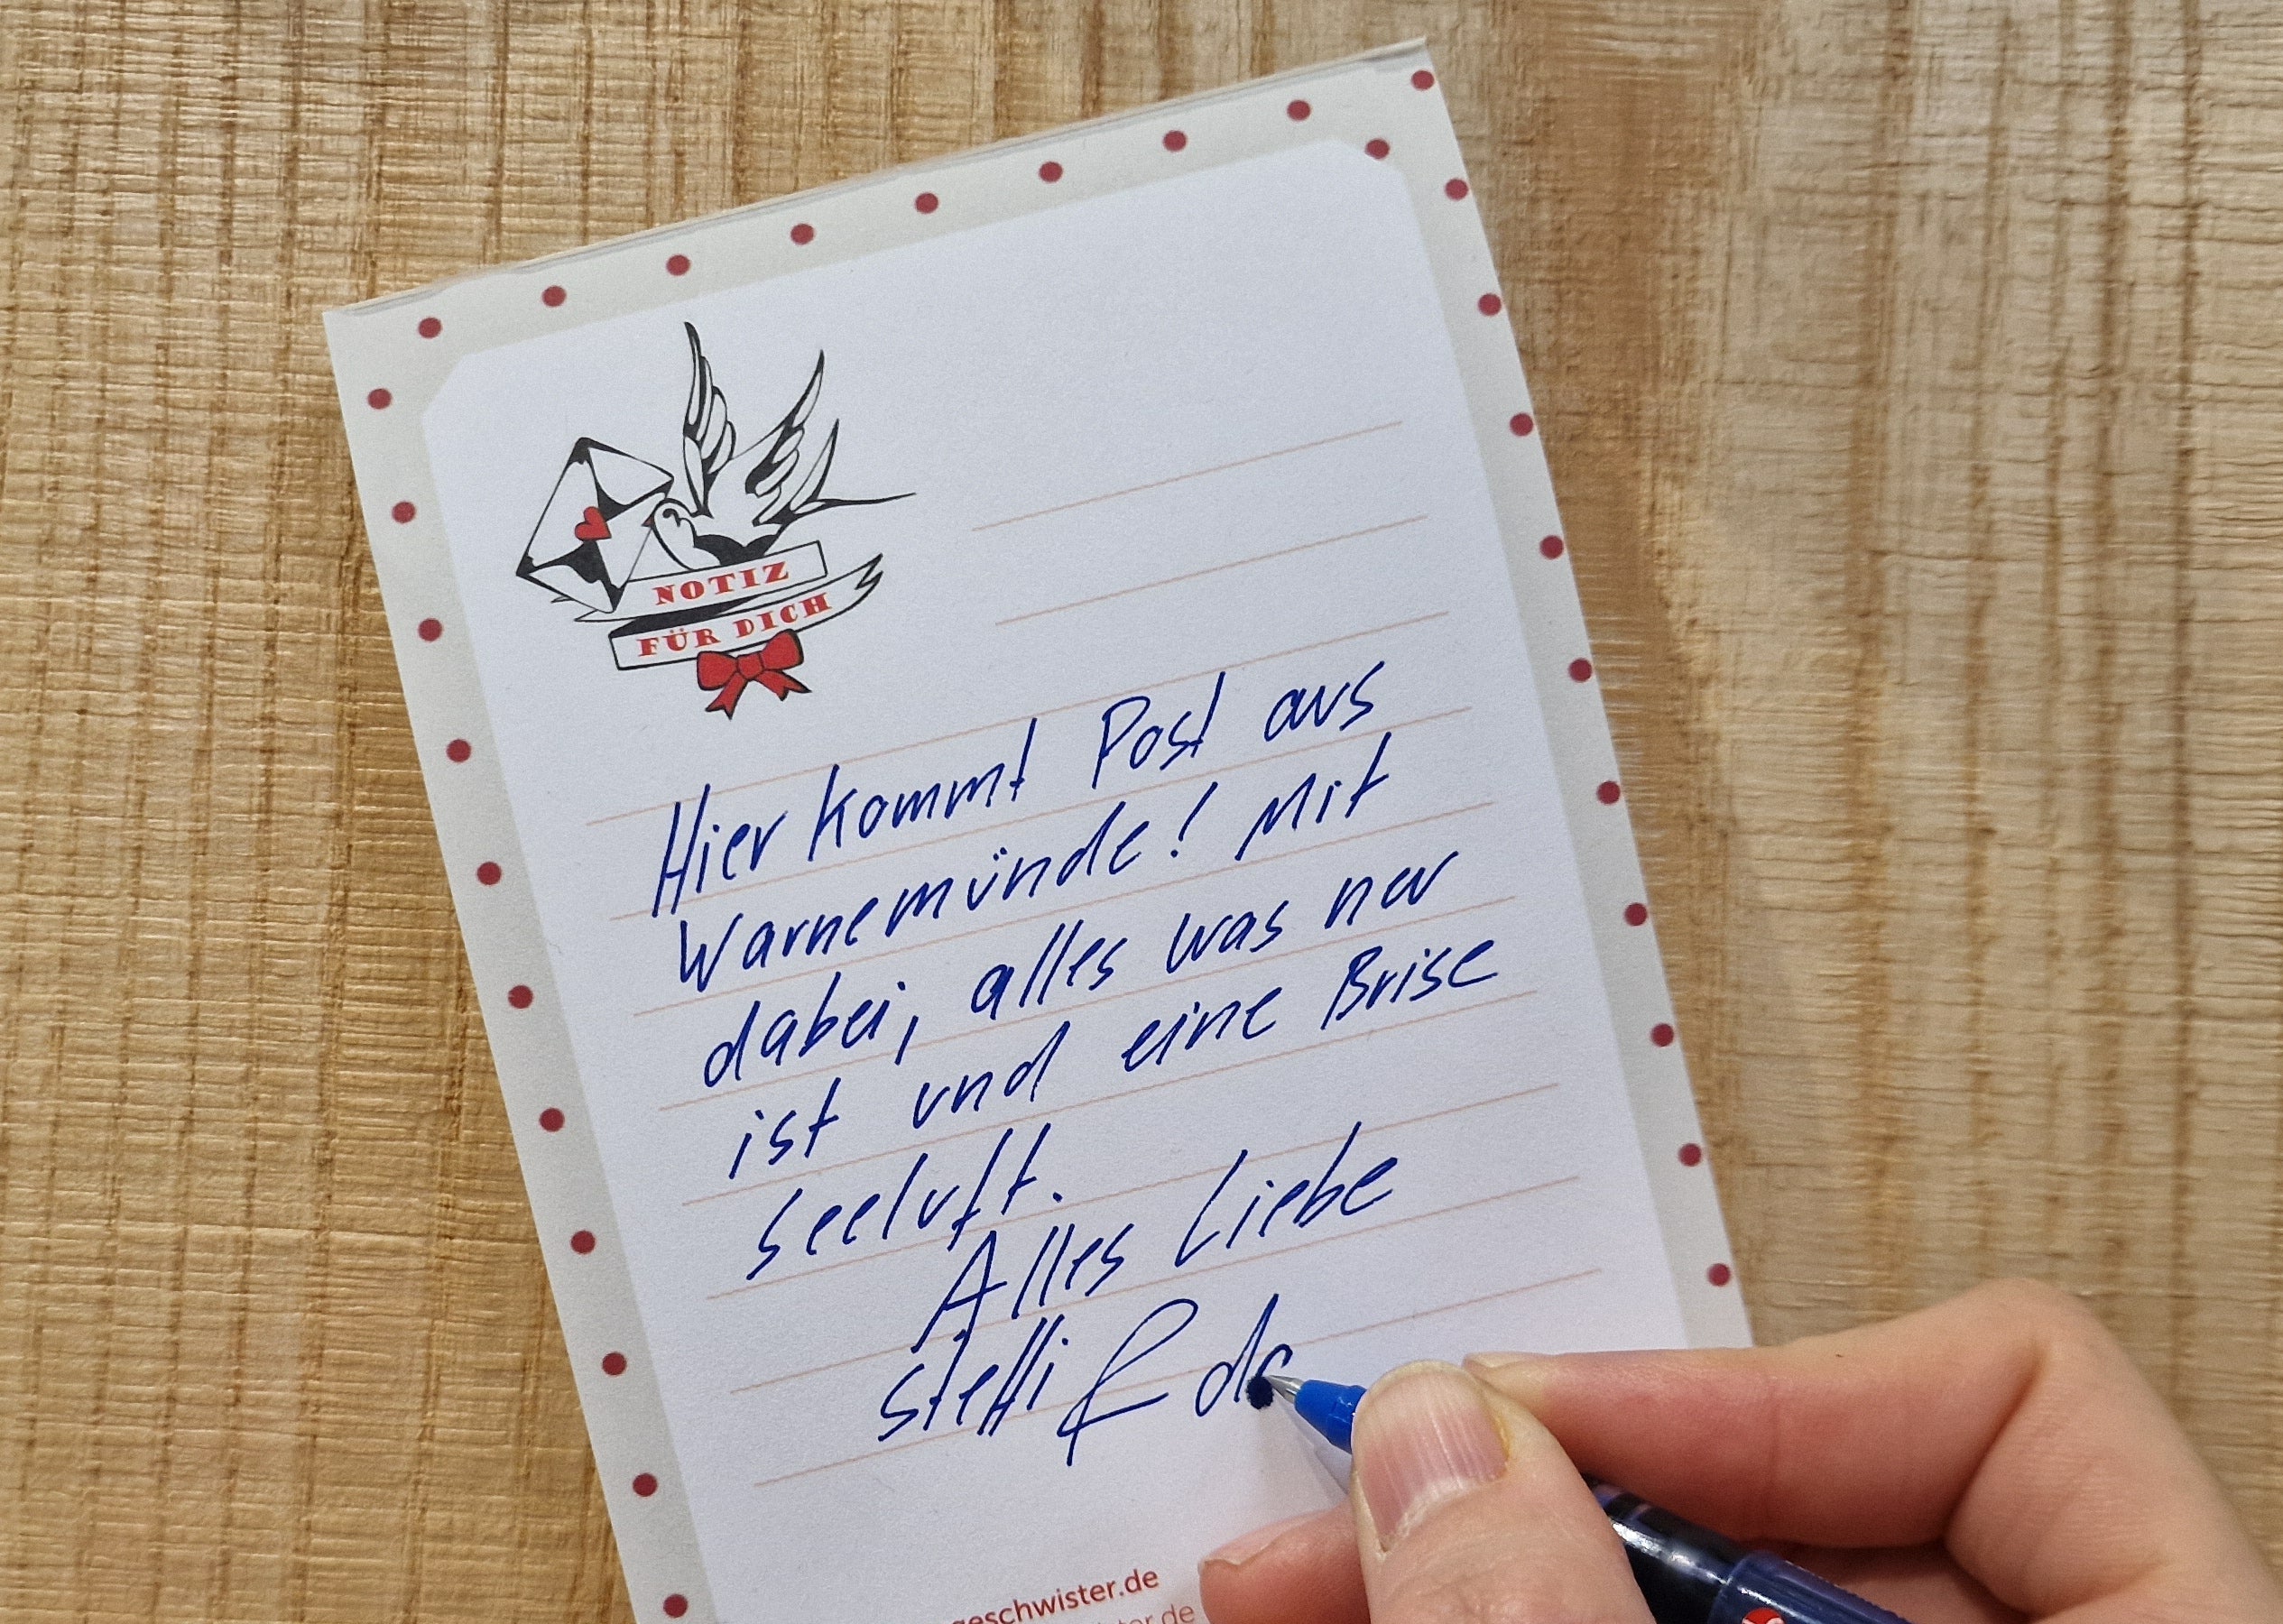 NOTIZ
FÜR DICH
Hier kommt Post aus
Warnemünde! Mit
dabei, alles was nur
ist und eine Brise
Seeluft.
Alles Liebe
Steffi & da
geschwister.de
ster.de